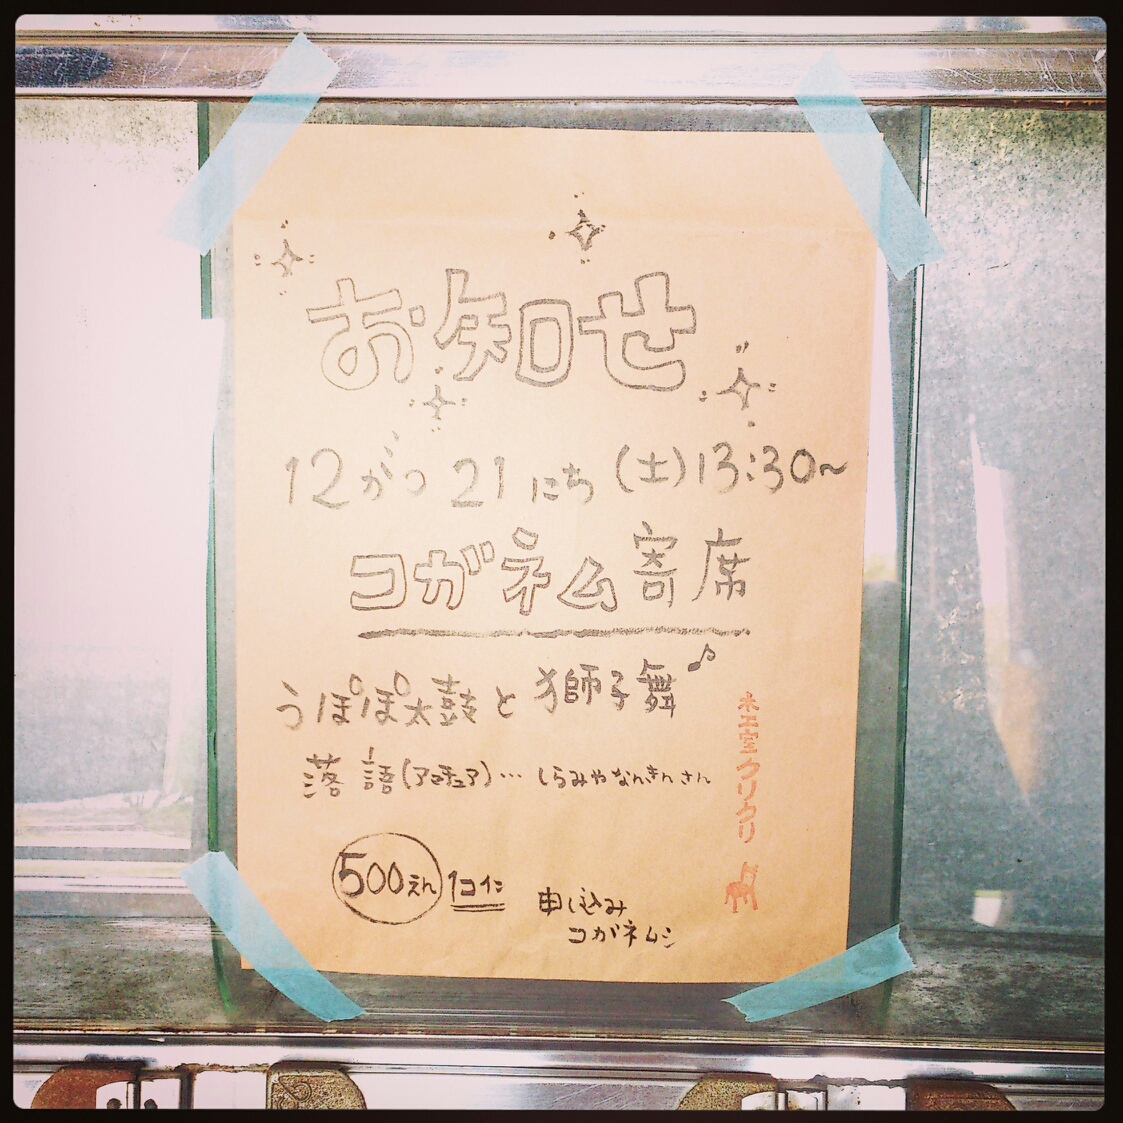 お知せ
12がつ 21にち (土) 13:30~
コガネム寄席
うぽぽ太鼓と 獅子舞♪
落語(アマチュア)… しらみやなんきんさん
500えん 1コイン
申し込み
コガネムシ
木工室クリクリ